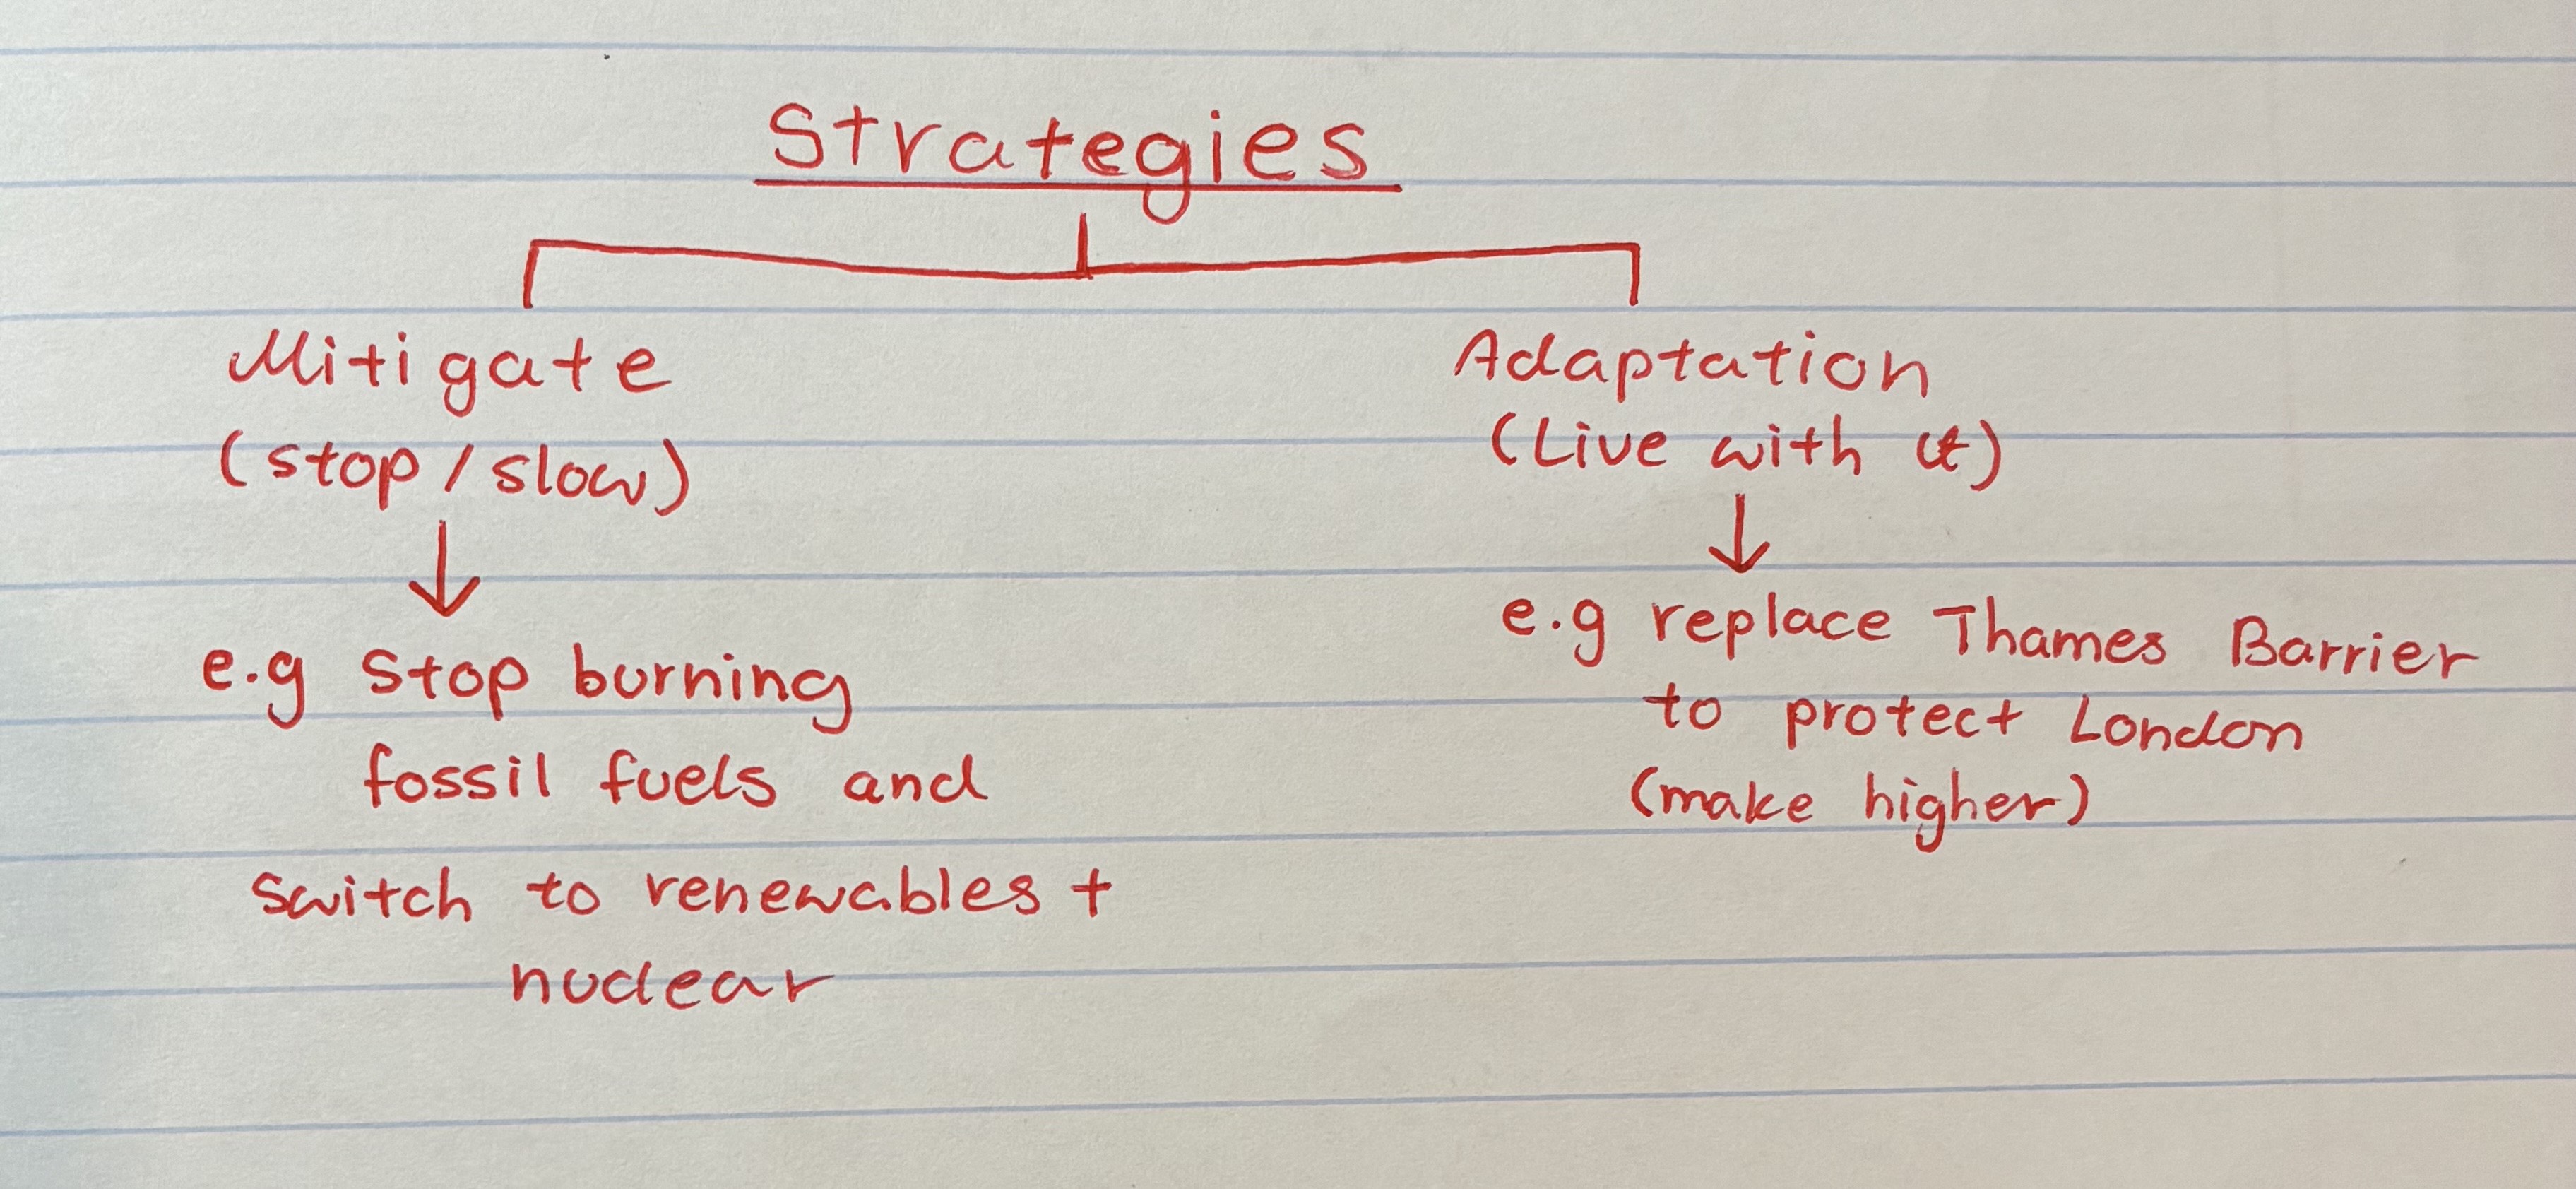 Strategies
Mitigate
(stop / slow)
e.g stop burning
fossil fuels and
switch to renewables +
nuclear
Adaptation
(Live with it)
e.g replace Thames Barrier
to protect London
(make higher)